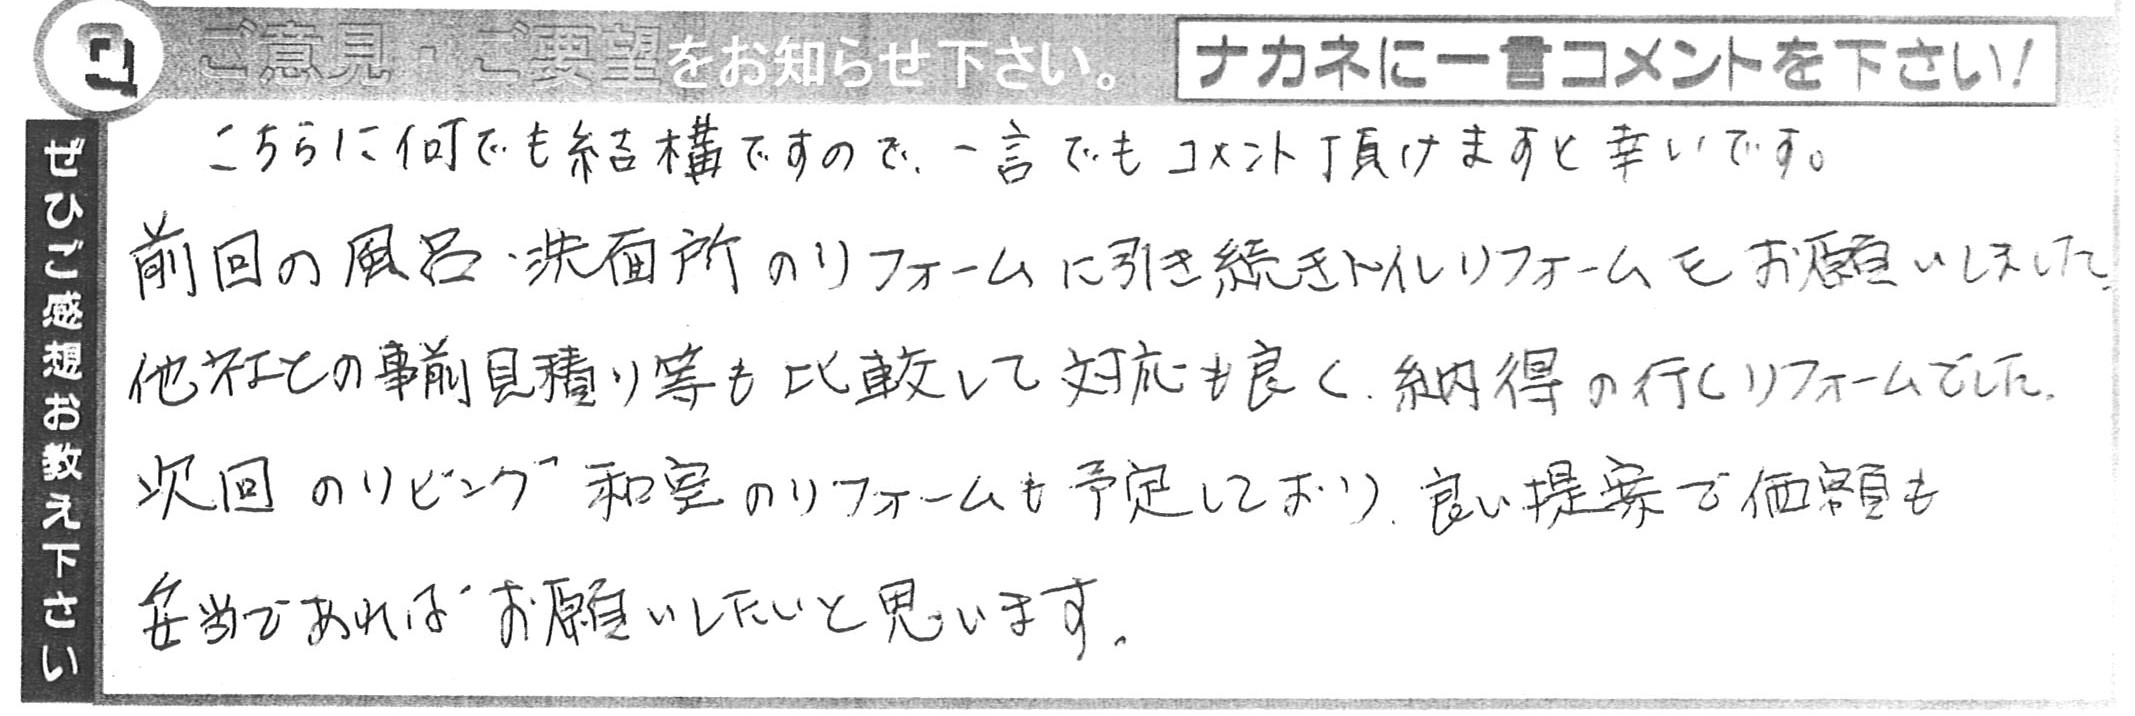 ご意見・ご要望をお知らせ下さい。 ナカネに一言コメントを下さい!
ぜひご感想お教え下さい
こちらに何でも結構ですので、一言でもコメント頂けますと幸いです。
前回の風呂・洗面所のリフォームに引き続きトイレリフォームをお願いしました。
他社との事前見積り等も比較して対応も良く、納得の行くリフォームでした。
次回のリビング和室のリフォームも予定しており、良い提案で価額も
妥当であればお願いしたいと思います。